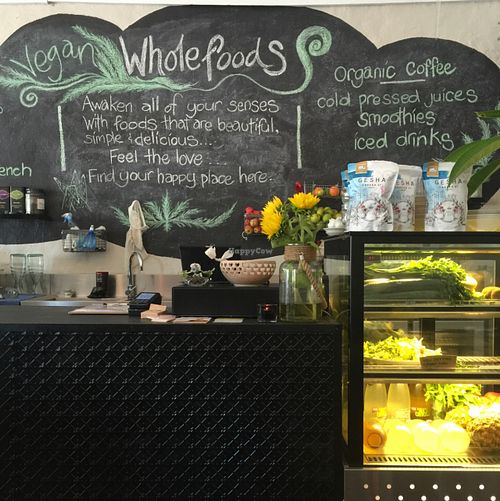 Vegan Wholefoods
Awaken all of your senses
with foods that are beautiful.
simple & delicious...
Feel the love...
Find your happy place here.
Organic Coffee
cold pressed juices
smoothies
iced drinks
ench
GESHA
GESHA
HappyCow